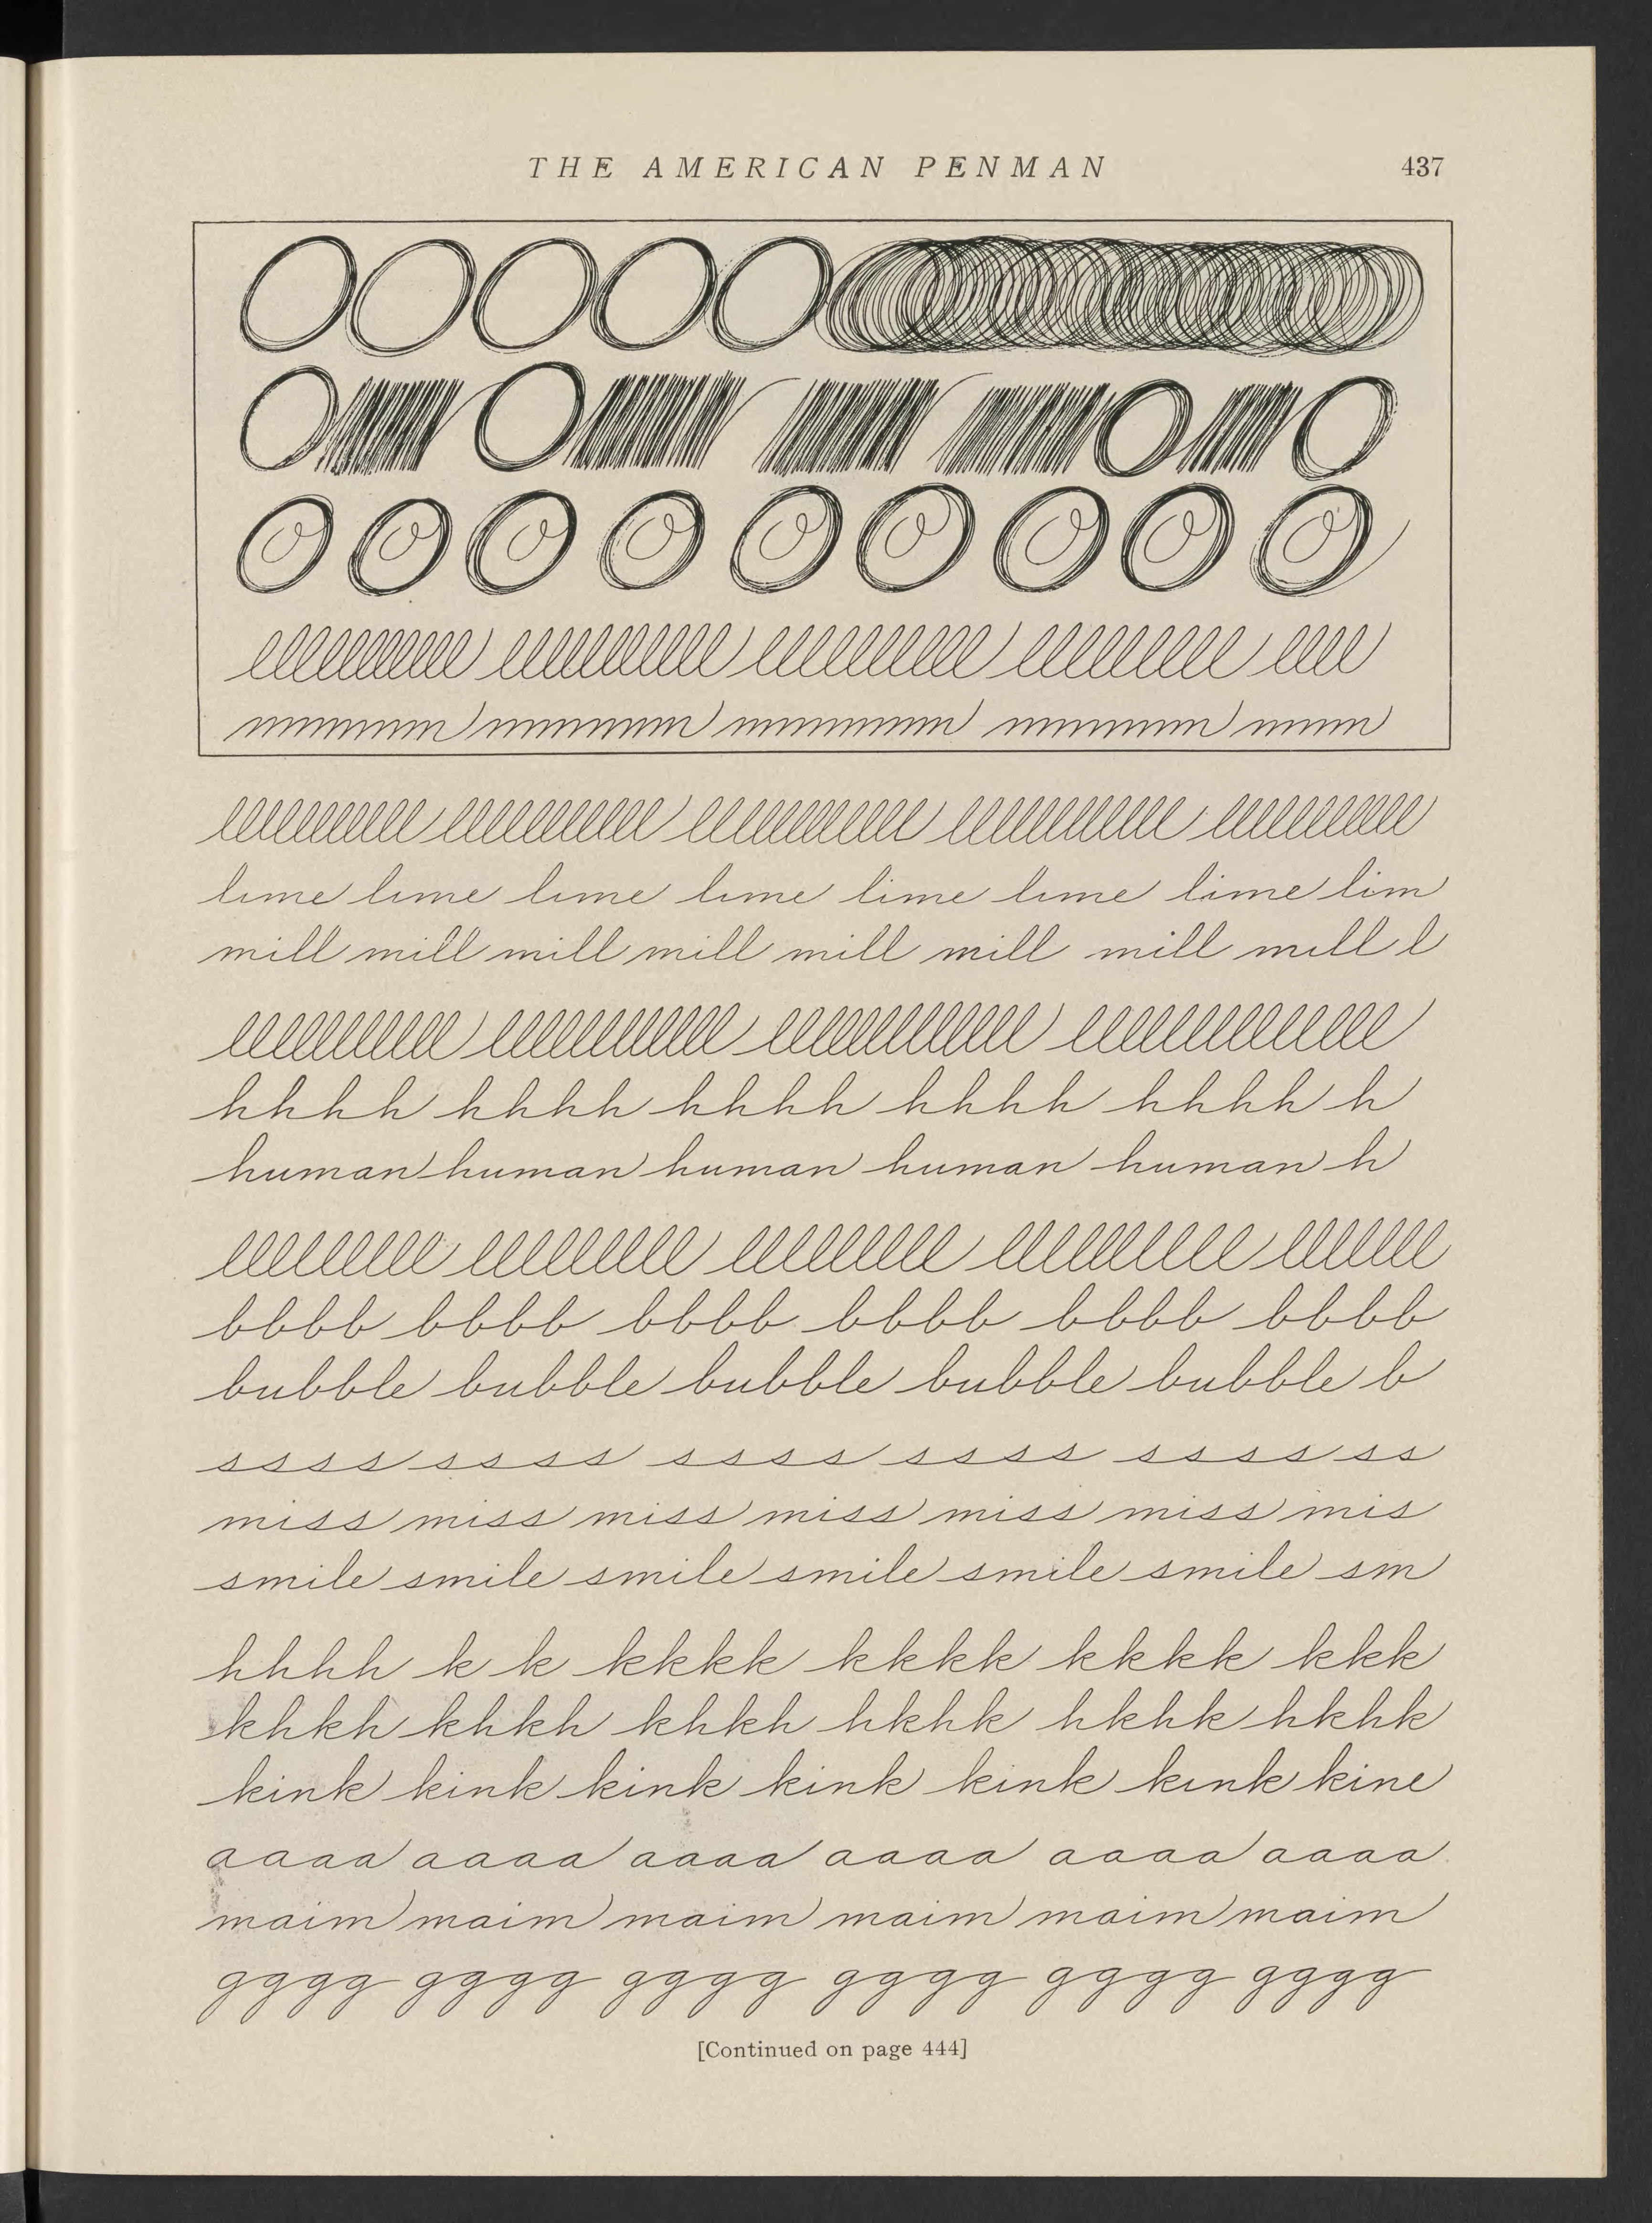 THE AMERICAN PENMAN 437
lime lime lime lime lime lime lime lim
mill mill mill mill mill mill mill mill l
hhhh hhhh hhhh hhhh hhhh h
human human human human human h
bbbb bbbb bbbb bbbb bbbb bbbb
bubble bubble bubble bubble bubble b
ssss ssss ssss ssss ssss ss
miss miss miss miss miss miss mis
smile smile smile smile smile smile sm
hhhh k k kkkk kkkk kkkk kkk
khkh khkh khkh hkhk hkhk hkhk
kink kink kink kink kink kink kine
aaaa aaaa aaaa aaaa aaaa aaaa
maim maim maim maim maim maim
gggg gggg gggg gggg gggg gggg
[Continued on page 444]